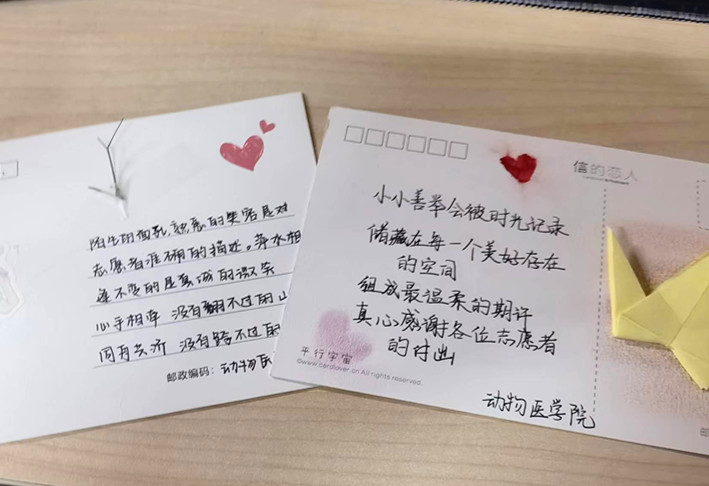 陌生的面孔,熟悉的笑容是对
志愿者准确的描述。萍水相
逢不变的是真诚的微笑
心手相牵 没有翻不过的山
同舟共济 没有跨不过的
邮政编码:动物医
信的恋人
小小善举会被时光记录
储藏在每一个美好存在
的空间
组成最温柔的期许
真心感谢各位志愿者
的付出
平行宇宙
©www.cardlover.cn All rights reserved.
动物医学院